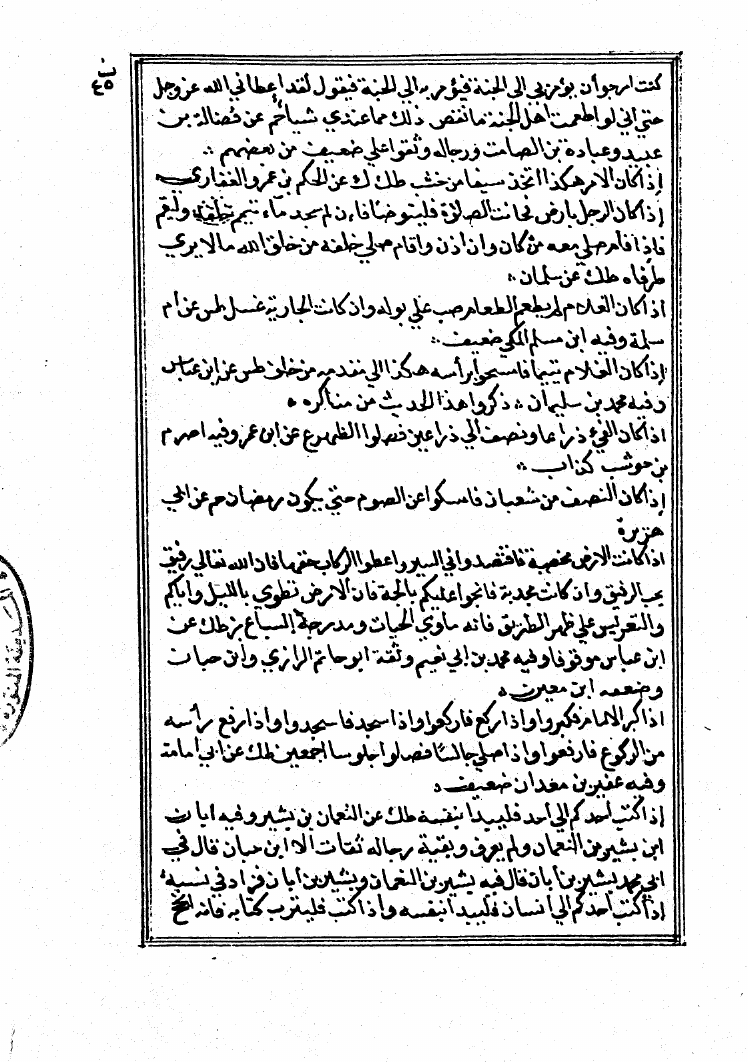 ن
٤٥
كنت ارجو أن يؤمر بي الى الجنة فيؤمر به الي الجنة فيقول لقد اعطاني الله عز وجل
حتي اني لو اطعمت اهل الجنة ما نقص ذلك مما عندي شيا خم عن فضالة بن
عبيد وعبادة بن الصامت ورجاله وثقوا علي ضعيف من بعضهم
إذا كان الامر هكذا اتخذ سيفا من خشب طك ك عن الحكم بن عمرو الغفاري
إذا كان الرجل بارض فحانت الصلوة فليتوضا فان لم يجد ماء تيمم وليقم
فاذا قام صلي معه من كان وان اذن واقام صلي خلفه من خلق الله ما لا يري
طرفاه طك عن سلمان
اذا كان الغلام لم يطعم الطعام صب علي بوله وان كانت الجارية غسل طس عن أم
سلمة وفيه ابن مسلم المكي ضعيف
إذا كان الغلام يتيما فامسحوا برأسه هكذا الي مقدمه من خلق طس عن ابن عباس
وفيه محمد بن سليمان ذكروا هذا الحديث من مناكره
اذا كان الفيء ذراعا ونصف الي ذراعين فصلوا الظهر ع عن ابن عمر وفيه اصرم
بن حوشب كذاب
إذا كان النصف من شعبان فامسكوا عن الصوم حتي يكون رمضان حم عن ابي
هريرة
اذا كانت الارض مخصبة فاقتصدوا في السير واعطوا الركاب حقها فان الله تعالي رفيق
يحب الرفق وان كانت مجدبة فانجوا عليكم بالدلجة فان الارض تطوي بالليل واياكم
والتعريس علي ظهر الطريق فانه ماوي الحيات ومدرجة السباع بز طك عن
ابن عباس موقوفا وفيه محمد بن ابي نعيم وثقة ابو حاتم الرازي وابن حبان
وضعفه ابن معين
اذا كبر الامام فكبروا واذا ركع فاركعوا واذا سجد فاسجدوا واذا رفع رأسه
من الركوع فارفعوا واذا صلي جالسا فصلوا جلوسا اجمعين طك عن ابي امامة
وفيه عفير بن معدان ضعيف
إذا كتب أحدكم الي احد فليبدا بنفسه طك عن النعمان بن بشير وفيه ابان
ابن بشير بن النعمان ولم يعرف وبقية رجاله ثقات الا ابن حبان قال في
ابي محمد بشير بن أبان قال فيه بشير بن النعمان وبشير بن أبان فزاد في نسبه
إذا كتب أحدكم الي انسان فليبدا بنفسه واذا كتب فليترب كتابه فانه انجح
المدينة المنورة